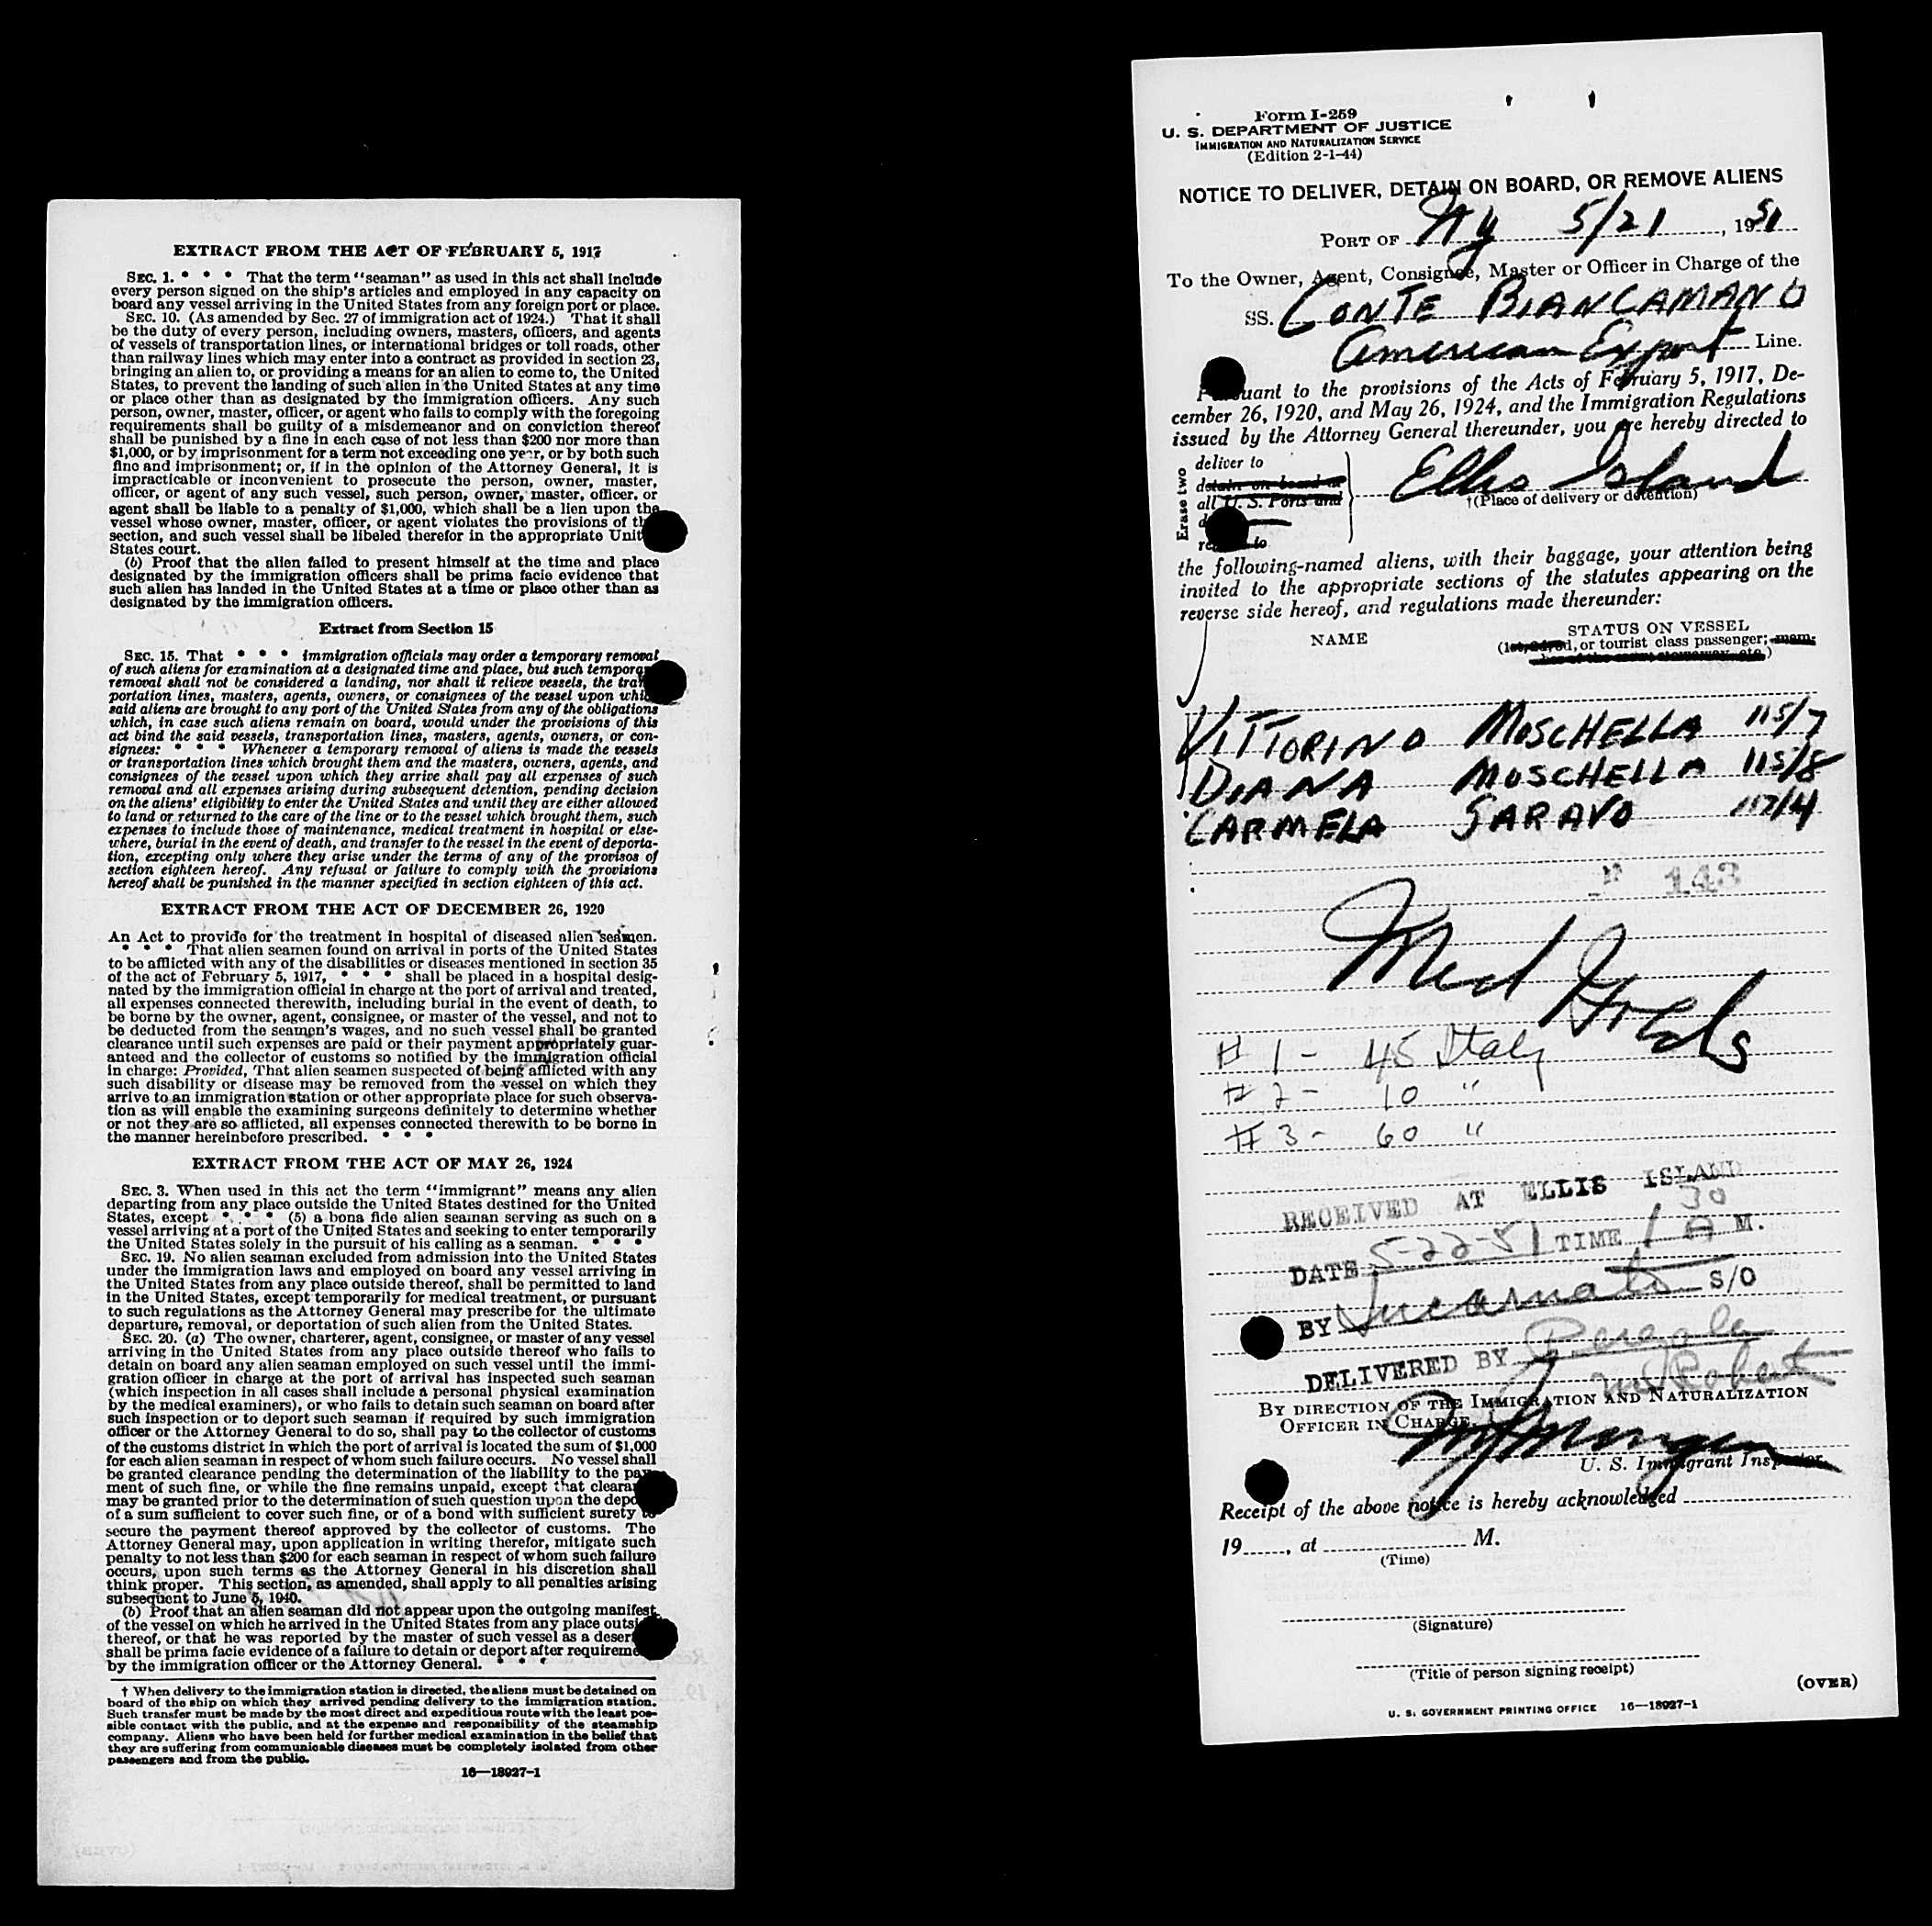 EXTRACT FROM THE ACT OF FEBRUARY 5, 1917
SEC. 1. * * * That the term "seaman" as used in this act shall include
every person signed on the ship's articles and employed in any capacity on
board any vessel arriving in the United States from any foreign port or place.
SEC. 10. (As amended by Sec. 27 of immigration act of 1924.) That it shall
be the duty of every person, including owners, masters, officers, and agents
of vessels of transportation lines, or international bridges or toll roads, other
than railway lines which may enter into a contract as provided in section 23,
bringing an alien to, or providing a means for an alien to come to, the United
States, to prevent the landing of such alien in the United States at any time
or place other than as designated by the immigration officers. Any such
person, owner, master, officer, or agent who fails to comply with the foregoing
requirements shall be guilty of a misdemeanor and on conviction thereof
shall be punished by a fine in each case of not less than $200 nor more than
$1,000, or by imprisonment for a term not exceeding one year, or by both such
fine and imprisonment; or, if in the opinion of the Attorney General, it is
impracticable or inconvenient to prosecute the person, owner, master,
officer, or agent of any such vessel, such person, owner, master, officer, or
agent shall be liable to a penalty of $1,000, which shall be a lien upon the
vessel whose owner, master, officer, or agent violates the provisions of
section, and such vessel shall be libeled therefor in the appropriate Unit
States court.
(b) Proof that the alien failed to present himself at the time and place
designated by the immigration officers shall be prima facie evidence that
such alien has landed in the United States at a time or place other than as
designated by the immigration officers.
Extract from Section 15
SEC. 15. That * * * immigration officials may order a temporary removal
of such aliens for examination at a designated time and place, but such temporar
removal shall not be considered a landing, nor shall it relieve vessels, the tra
portation lines, masters, agents, owners, or consignees of the vessel upon whi
said aliens are brought to any port of the United States from any of the obligations
which, in case such aliens remain on board, would under the provisions of this
act bind the said vessels, transportation lines, masters, agents, owners, or con-
signees: * * * Whenever a temporary removal of aliens is made the vessels
or transportation lines which brought them and the masters, owners, agents, and
consignees of the vessel upon which they arrive shall pay all expenses of such
removal and all expenses arising during subsequent detention, pending decision
on the aliens' eligibility to enter the United States and until they are either allowed
to land or returned to the care of the line or to the vessel which brought them, such
expenses to include those of maintenance, medical treatment in hospital or else-
where, burial in the event of death, and transfer to the vessel in the event of deporta-
tion, excepting only where they arise under the terms of any of the provisos of
section eighteen hereof. Any refusal or failure to comply with the provisions
hereof shall be punished in the manner specified in section eighteen of this act.
EXTRACT FROM THE ACT OF DECEMBER 26, 1920
An Act to provide for the treatment in hospital of diseased alien seamen.
* * * That alien seamen found on arrival in ports of the United States
to be afflicted with any of the disabilities or diseases mentioned in section 35
of the act of February 5, 1917, * * * shall be placed in a hospital desig-
nated by the immigration official in charge at the port of arrival and treated,
all expenses connected therewith, including burial in the event of death, to
be borne by the owner, agent, consignee, or master of the vessel, and not to
be deducted from the seamen's wages, and no such vessel shall be granted
clearance until such expenses are paid or their payment appropriately guar-
anteed and the collector of customs so notified by the immigration official
in charge: Provided, That alien seamen suspected of being afflicted with any
such disability or disease may be removed from the vessel on which they
arrive to an immigration station or other appropriate place for such observa-
tion as will enable the examining surgeons definitely to determine whether
or not they are so afflicted, all expenses connected therewith to be borne in
the manner hereinbefore prescribed. * * *
EXTRACT FROM THE ACT OF MAY 26, 1924
SEC. 3. When used in this act the term "immigrant" means any alien
departing from any place outside the United States destined for the United
States, except * * * (5) a bona fide alien seaman serving as such on a
vessel arriving at a port of the United States and seeking to enter temporarily
the United States solely in the pursuit of his calling as a seaman. * * *
SEC. 19. No alien seaman excluded from admission into the United States
under the immigration laws and employed on board any vessel arriving in
the United States from any place outside thereof, shall be permitted to land
in the United States, except temporarily for medical treatment, or pursuant
to such regulations as the Attorney General may prescribe for the ultimate
departure, removal, or deportation of such alien from the United States.
SEC. 20. (a) The owner, charterer, agent, consignee, or master of any vessel
arriving in the United States from any place outside thereof who fails to
detain on board any alien seaman employed on such vessel until the immi-
gration officer in charge at the port of arrival has inspected such seaman
(which inspection in all cases shall include a personal physical examination
by the medical examiners), or who fails to detain such seaman on board after
such inspection or to deport such seaman if required by such immigration
officer or the Attorney General to do so, shall pay to the collector of customs
of the customs district in which the port of arrival is located the sum of $1,000
for each alien seaman in respect of whom such failure occurs. No vessel shall
be granted clearance pending the determination of the liability to the pay
ment of such fine, or while the fine remains unpaid, except that cleara
may be granted prior to the determination of such question upon the depo
of a sum sufficient to cover such fine, or of a bond with sufficient surety to
secure the payment thereof approved by the collector of customs. The
Attorney General may, upon application in writing therefor, mitigate such
penalty to not less than $200 for each seaman in respect of whom such failure
occurs, upon such terms as the Attorney General in his discretion shall
think proper. This section, as amended, shall apply to all penalties arising
subsequent to June 5, 1940.
(b) Proof that an alien seaman did not appear upon the outgoing manifest
of the vessel on which he arrived in the United States from any place outsi
thereof, or that he was reported by the master of such vessel as a deser
shall be prima facie evidence of a failure to detain or deport after requireme
by the immigration officer or the Attorney General. * * *
† When delivery to the immigration station is directed, the aliens must be detained on
board of the ship on which they arrived pending delivery to the immigration station.
Such transfer must be made by the most direct and expeditious route with the least pos-
sible contact with the public, and at the expense and responsibility of the steamship
company. Aliens who have been held for further medical examination in the belief that
they are suffering from communicable diseases must be completely isolated from other
passengers and from the public.
16—18927-1
Form I-259
U. S. DEPARTMENT OF JUSTICE
IMMIGRATION AND NATURALIZATION SERVICE
(Edition 2-1-44)
NOTICE TO DELIVER, DETAIN ON BOARD, OR REMOVE ALIENS
PORT OF NY 5/21, 1951
To the Owner, Agent, Consignee, Master or Officer in Charge of the
SS. CONTE BIANCAMANO
American Export Line.
Pursuant to the provisions of the Acts of February 5, 1917, De-
cember 26, 1920, and May 26, 1924, and the Immigration Regulations
issued by the Attorney General thereunder, you are hereby directed to
Erase two
deliver to
detain on board at
all U. S. Ports and
Ellis Island
†(Place of delivery or detention)
the following-named aliens, with their baggage, your attention being
invited to the appropriate sections of the statutes appearing on the
reverse side hereof, and regulations made thereunder:
NAME STATUS ON VESSEL
(1st, 2d, 3d, or tourist class passenger; mem-
ber of the crew, stowaway, etc.)
VITTORINO MOSCHELLA 115/7
DIANA MOSCHELLA 115/8
CARMELA SARAVO 117/4
143
Med Holds
# 1 - 45 Italy
# 2 - 10 "
# 3 - 60 "
RECEIVED AT ELLIS ISLAND
DATE 5-22-51 TIME 1 30 A M.
BY Incarnato S/O
DELIVERED BY
BY DIRECTION OF THE IMMIGRATION AND NATURALIZATION
OFFICER IN CHARGE,
U. S. Immigrant Inspector.
Receipt of the above notice is hereby acknowledged
19 , at M.
(Time)
(Signature)
(Title of person signing receipt)
(OVER)
U. S. GOVERNMENT PRINTING OFFICE 16—18927-1